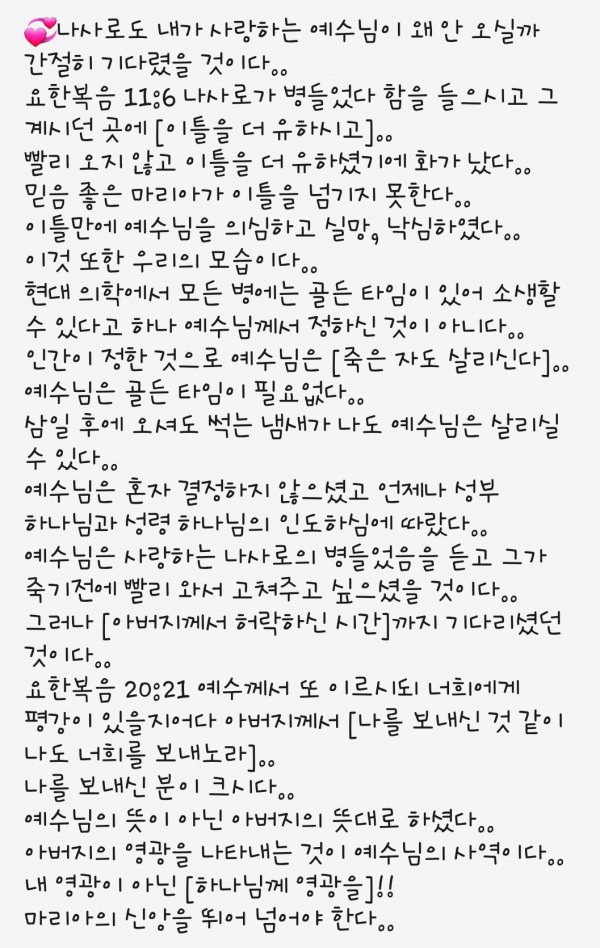 💞나사로도 내가 사랑하는 예수님이 왜 안 오실까
간절히 기다렸을 것이다..
요한복음 11:6 나사로가 병들었다 함을 들으시고 그
계시던 곳에 [이틀을 더 유하시고]..
빨리 오지 않고 이틀을 더 유하셨기에 화가 났다..
믿음 좋은 마리아가 이틀을 넘기지 못한다..
이틀만에 예수님을 의심하고 실망, 낙심하였다..
이것 또한 우리의 모습이다..
현대 의학에서 모든 병에는 골든 타임이 있어 소생할
수 있다고 하나 예수님께서 정하신 것이 아니다..
인간이 정한 것으로 예수님은 [죽은 자도 살리신다]..
예수님은 골든 타임이 필요없다..
삼일 후에 오셔도 썩는 냄새가 나도 예수님은 살리실
수 있다..
예수님은 혼자 결정하지 않으셨고 언제나 성부
하나님과 성령 하나님의 인도하심에 따랐다..
예수님은 사랑하는 나사로의 병들었음을 듣고 그가
죽기전에 빨리 와서 고쳐주고 싶으셨을 것이다..
그러나 [아버지께서 허락하신 시간]까지 기다리셨던
것이다..
요한복음 20:21 예수께서 또 이르시되 너희에게
평강이 있을지어다 아버지께서 [나를 보내신 것 같이
나도 너희를 보내노라]..
나를 보내신 분이 크시다..
예수님의 뜻이 아닌 아버지의 뜻대로 하셨다..
아버지의 영광을 나타내는 것이 예수님의 사역이다..
내 영광이 아닌 [하나님께 영광을]!!
마리아의 신앙을 뛰어 넘어야 한다..